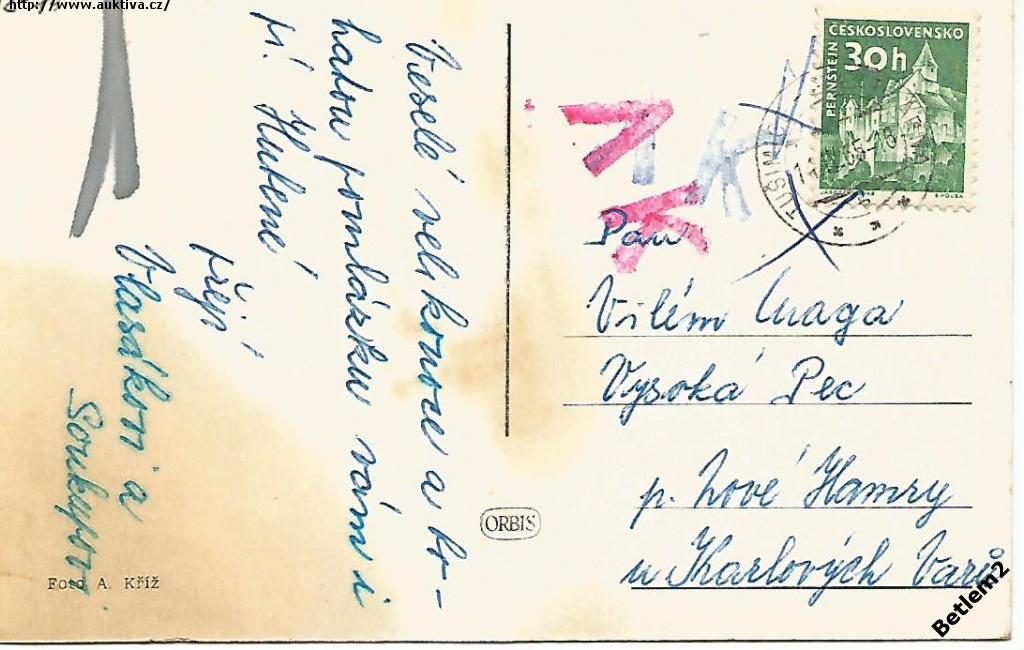 http://www.auktiva.cz/
Veselé velikonoce a bo-
hatou pomlázku vám i
př. Hutené
přejí
Vlasákovi a
Soukupovi
Foto A. Kříž
ORBIS
ČESKOSLOVENSKO
30h
PERNŠTEJN
TUŠIMICE
Pan
Vilém Maga
Vysoká Pec
p. Nové Hamry
u Karlových Varů
Betlem2